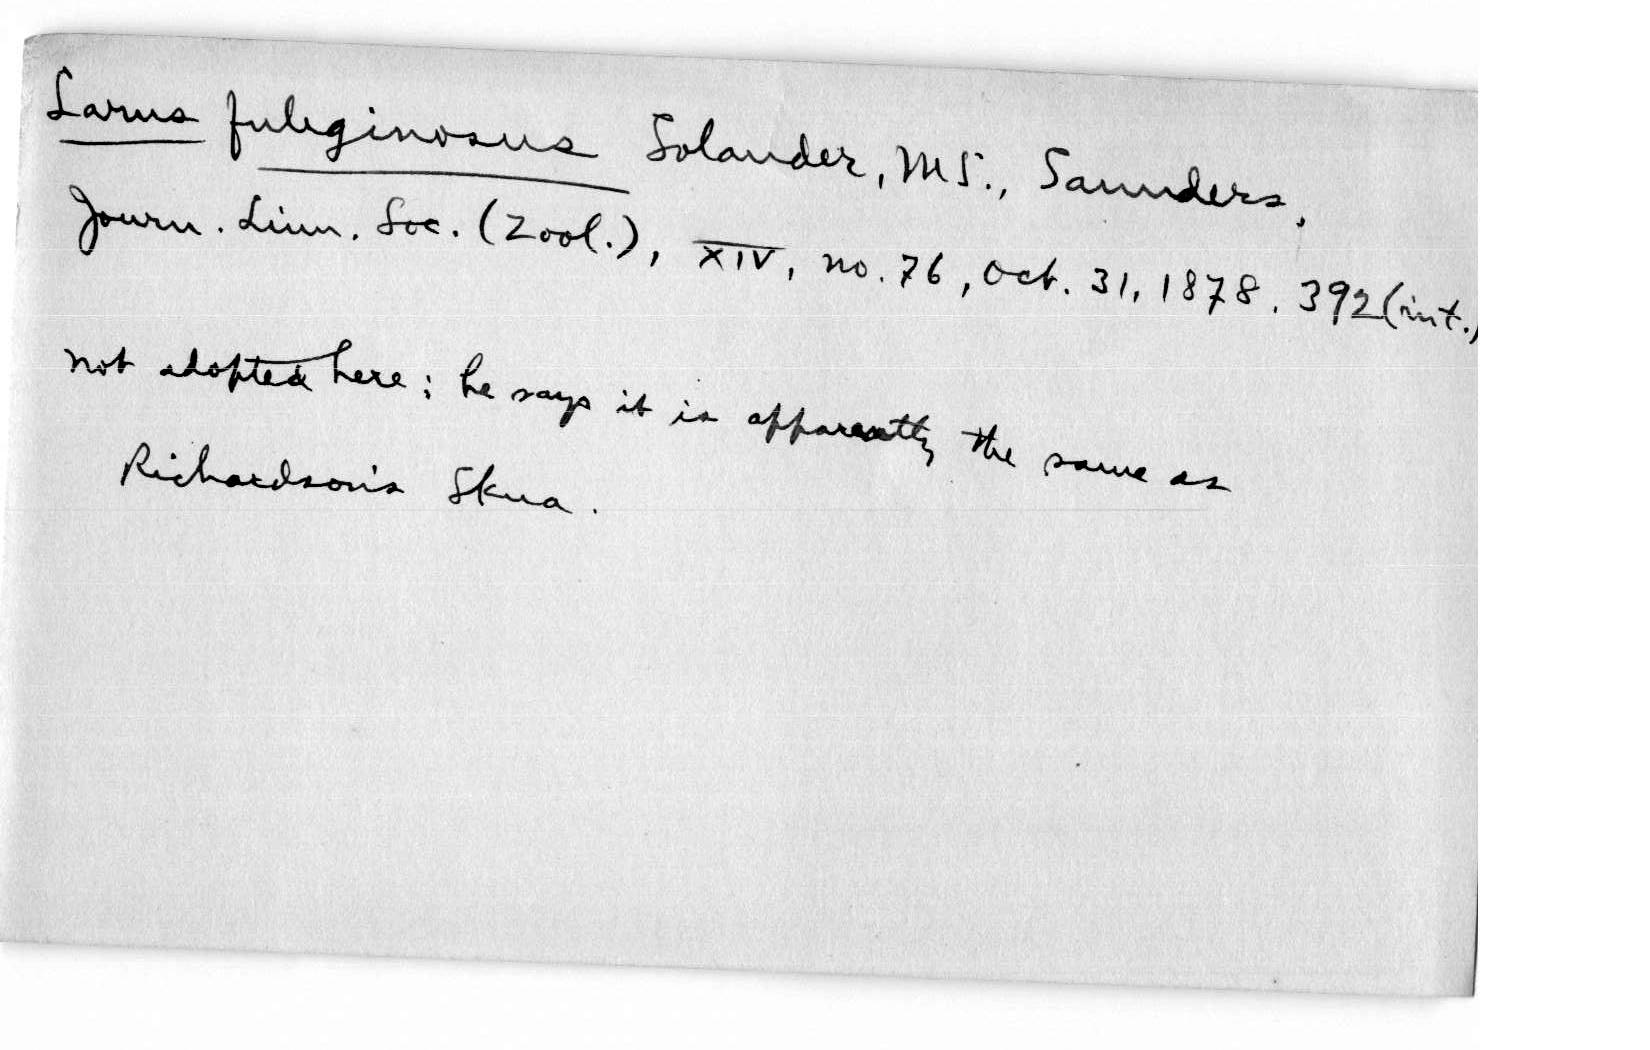 Larus fuliginosus Solander, MS., Saunders,
Journ. Linn. Soc. (Zool.), XIV, no. 76, Oct. 31, 1878. 392 (int.)
not adopted here; he says it is apparently the same as
Richardson's Skua.